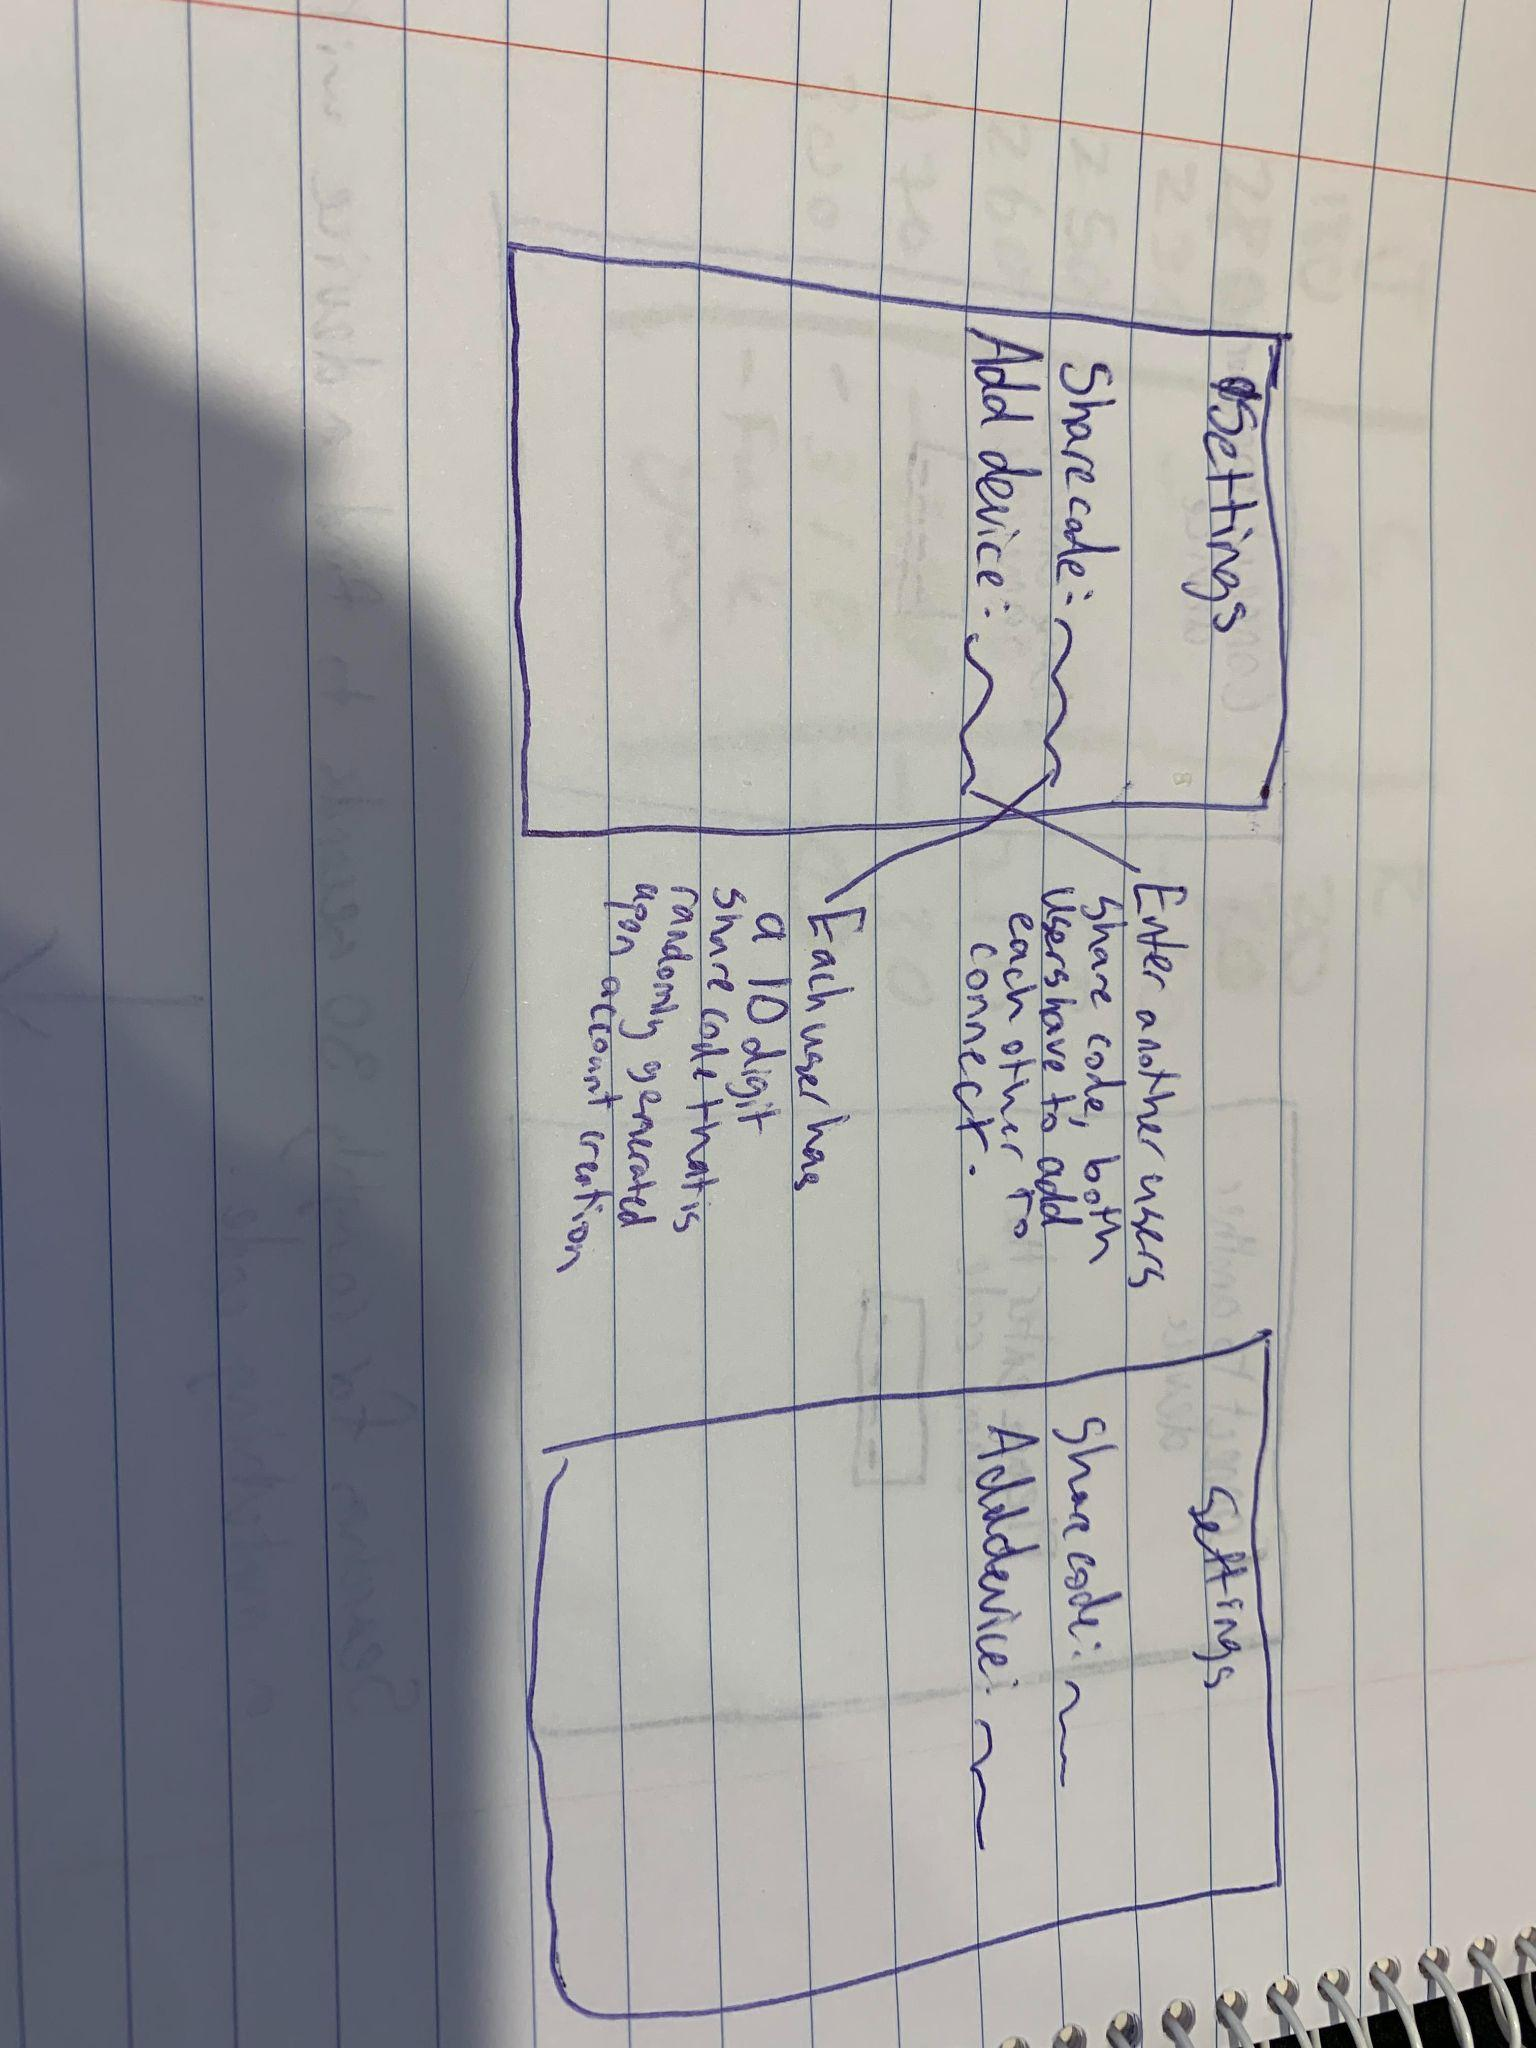 Settings
Share code:
Add device:
Enter another users
share code, both
users have to add
each other to
connect.
Each user has
a 10 digit
share code that is
randomly generated
upon account creation
Settings
Share code:
Add device: